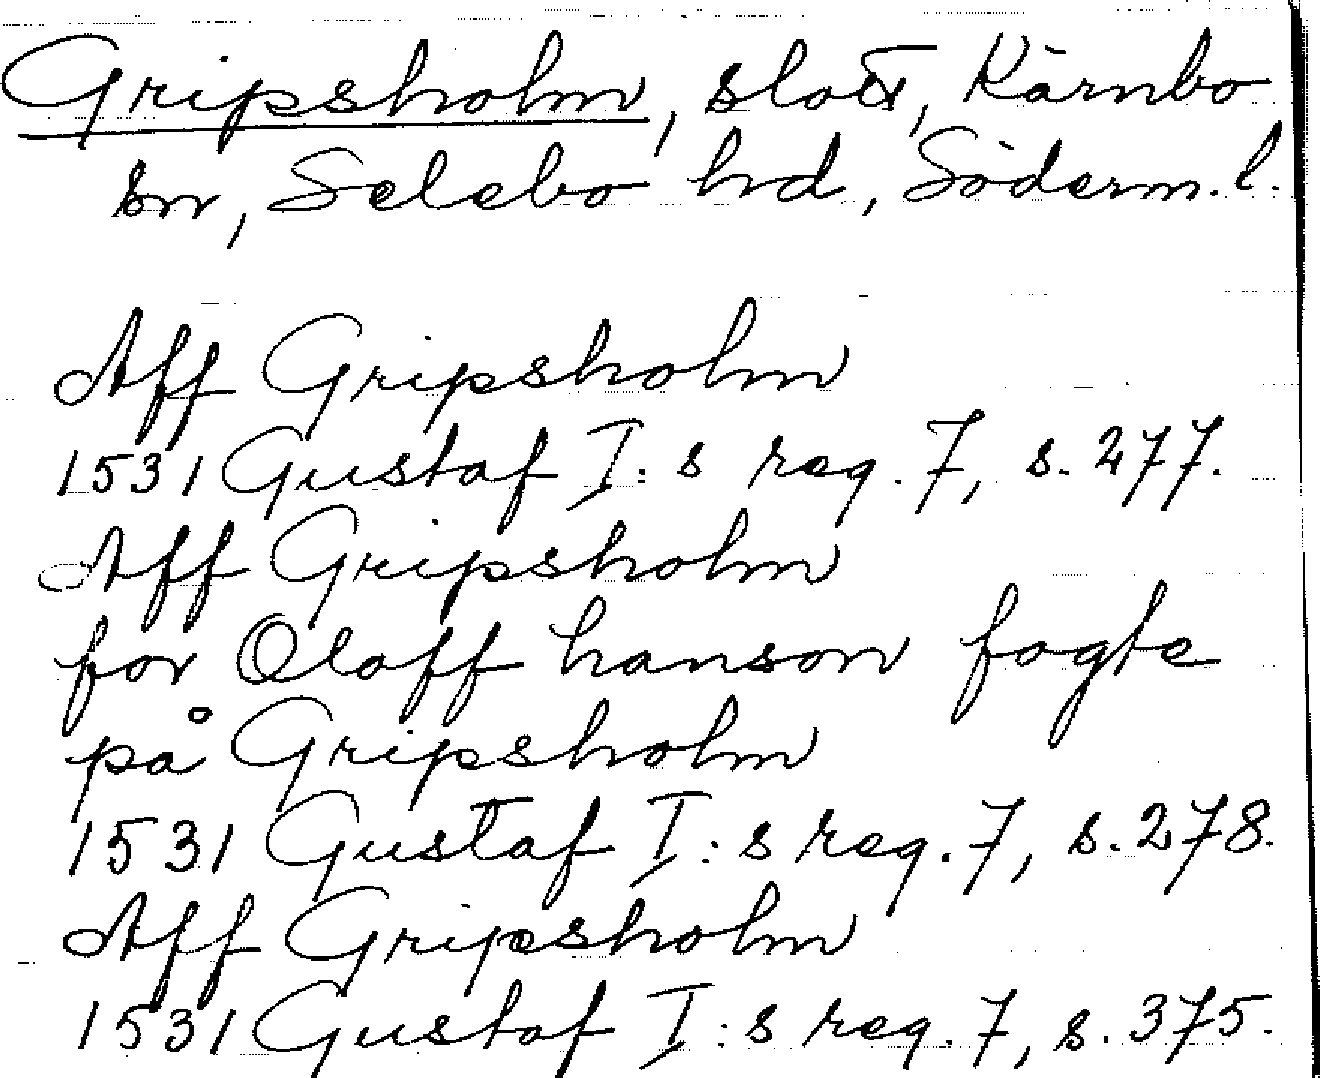 Gripsholm, slott, Kärnbo
sn, Selebo hd, Söderm. l.
Aff Gripsholm
1531 Gustaf I: s reg. 7, s. 277.
Aff Gripsholm
for Oloff hanson fogte
på Gripsholm
1531 Gustaf I: s reg. 7, s. 278.
Aff Gripsholm
1531 Gustaf I: s reg. 7, s. 375.